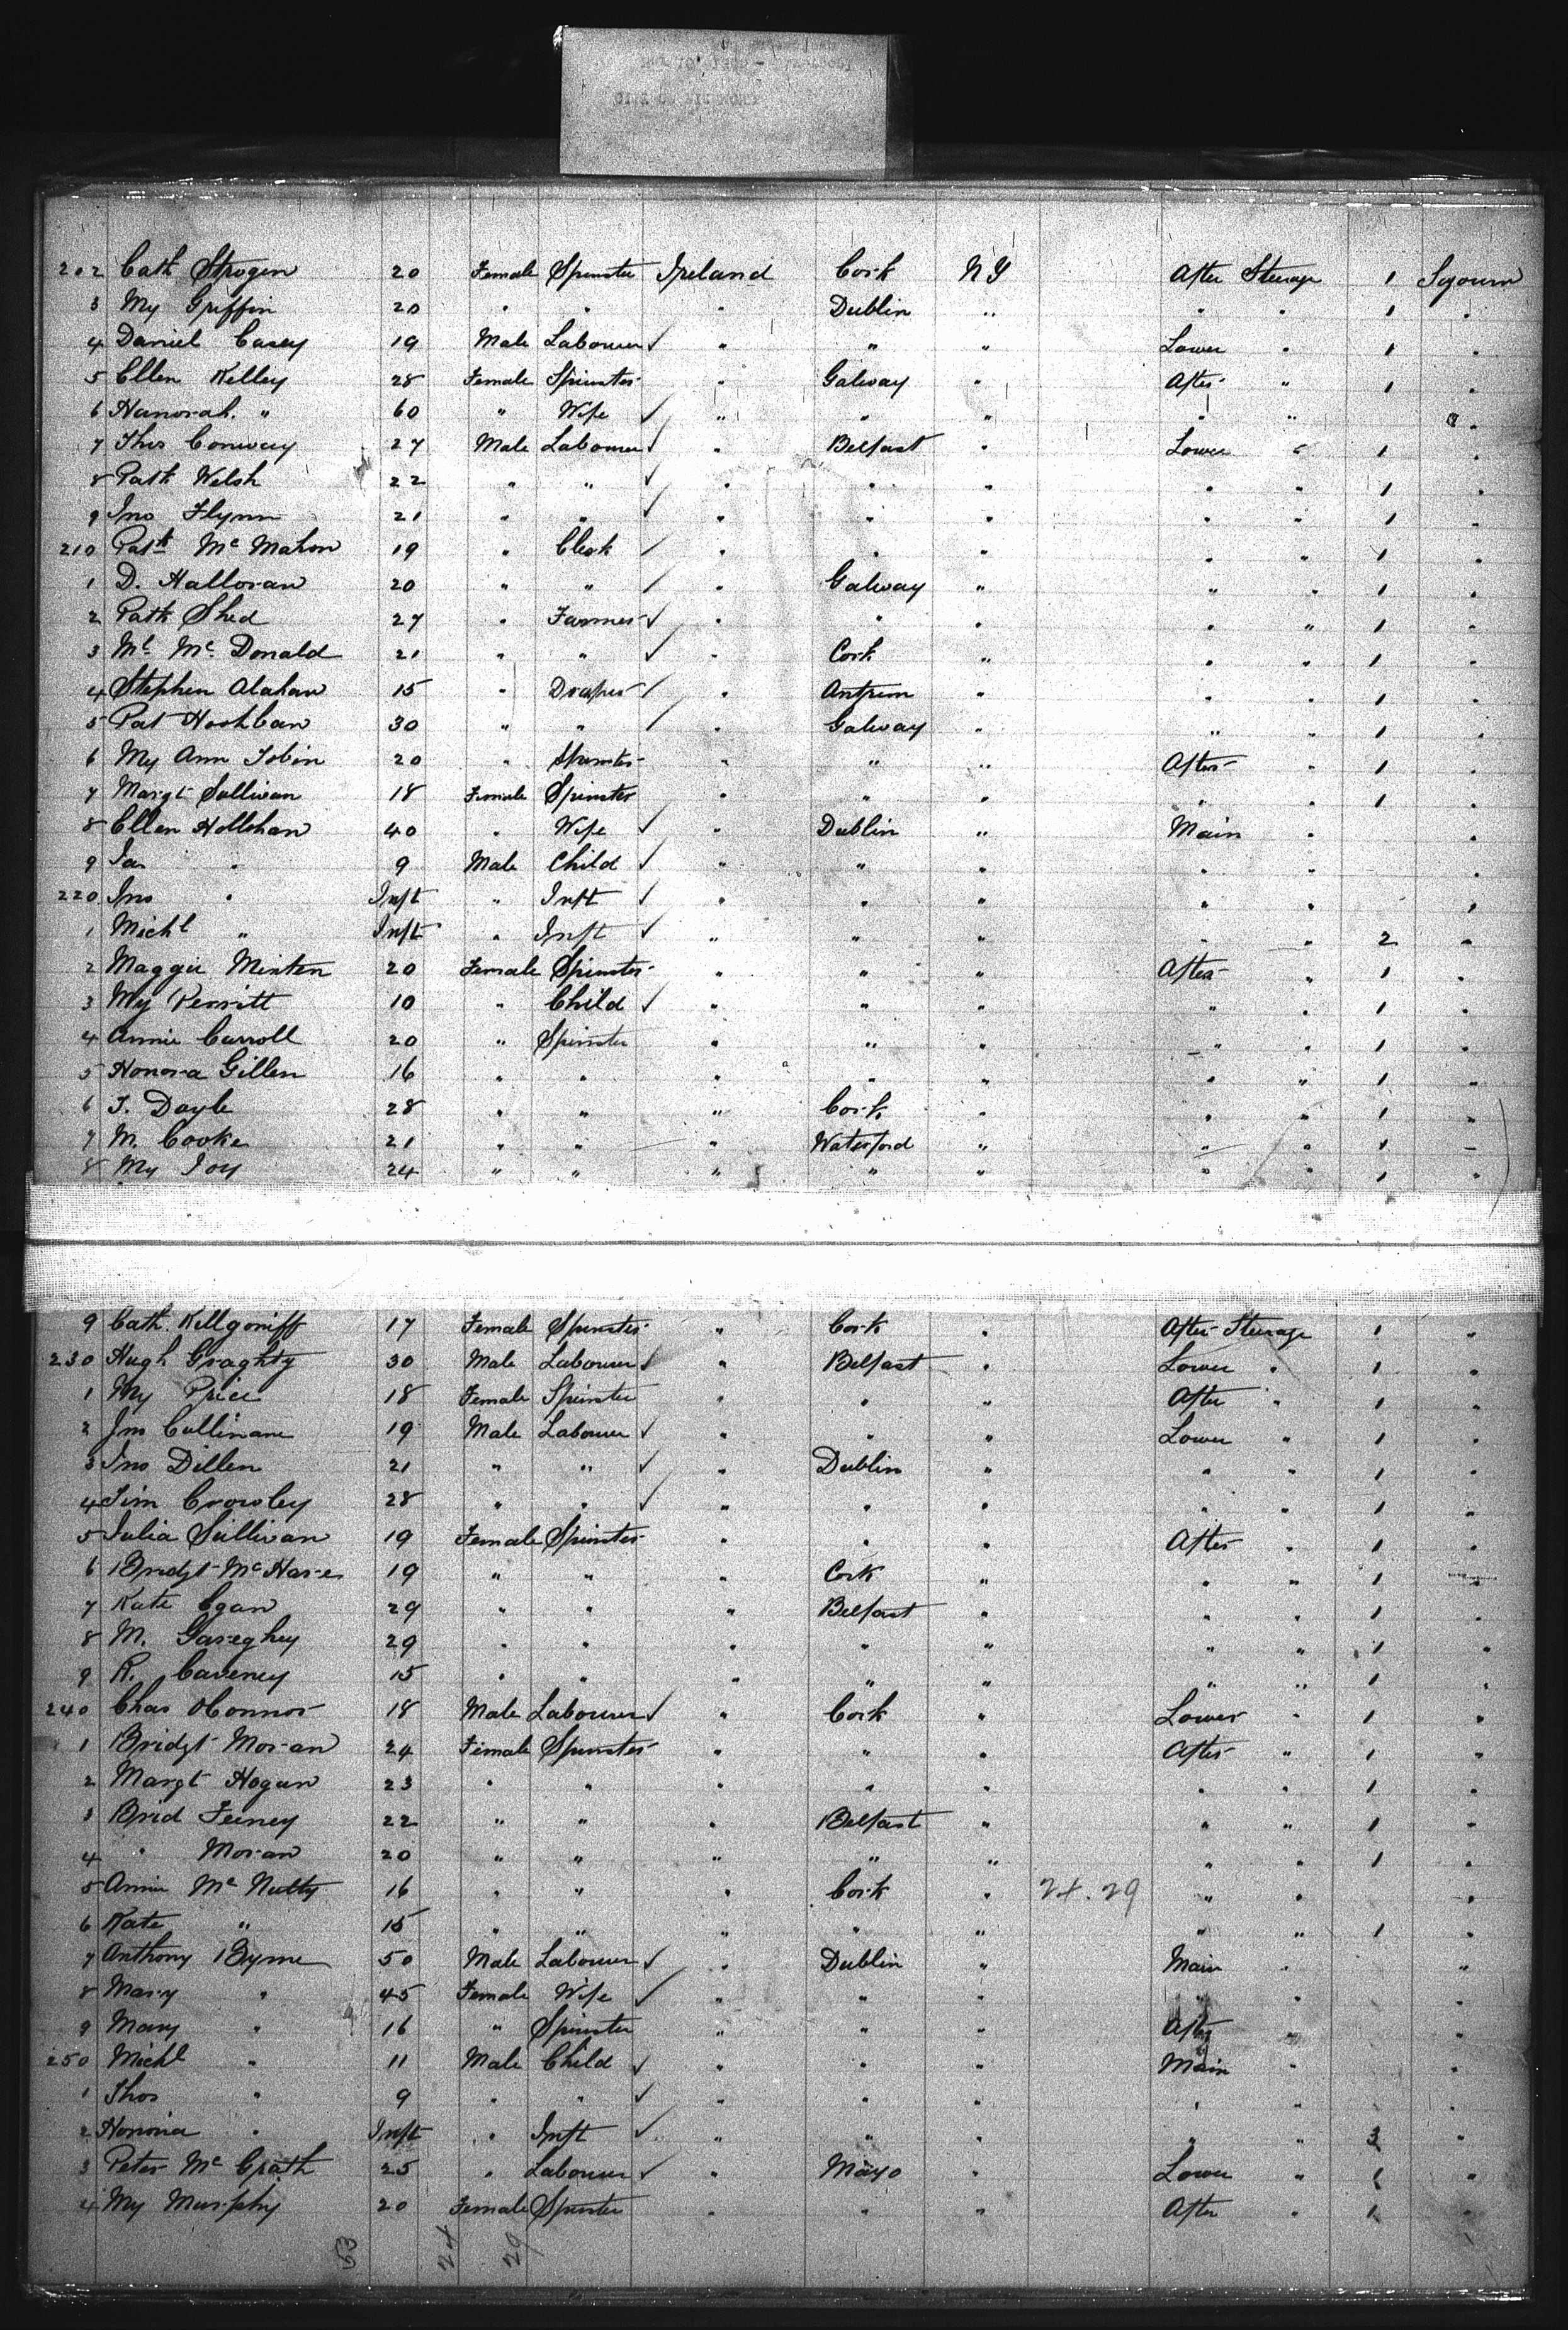 202 Cath Strogen 20 Female Spinster Ireland Cork NY After Steerage 1 Sojourn
3 My Griffin 20 " " " Dublin " " " 1 "
4 Daniel Casey 19 Male Labourer ✓ " " " Lower " 1 "
5 Ellen Kelley 28 Female Spinster " Galway " After " 1 "
6 Hanorah " 60 " Wife ✓ " " " " " "
7 Thos Conway 27 Male Labourer ✓ " Belfast " Lower " 1 "
8 Patk Welsh 22 " " ✓ " " " " " 1 "
9 Jno Flynn 21 " " ✓ " " " " " 1 "
210 Patk Mc Mahon 19 " Clerk ✓ " " " " " 1 "
1 D. Halloran 20 " " ✓ " Galway " " " 1 "
2 Patk Shed 27 " Farmer ✓ " " " " " 1 "
3 Ml Mc Donald 21 " " ✓ " Cork " " " 1 "
4 Stephen Alahan 15 " Draper ✓ " Antrim " " " 1 "
5 Pat Hoshban 30 " " ✓ " Galway " " " 1 "
6 My Ann Tobin 20 " Spinster " " " After " 1 "
7 Margt Sullivan 18 Female Spinster " " " " " 1 "
8 Ellen Hollohan 40 " Wife ✓ " Dublin " Main " "
9 Jas " 9 Male Child ✓ " " " " " "
220 Jno " Inft " Inft ✓ " " " " " "
1 Michl " Inft " Inft ✓ " " " " " 2 "
2 Maggie Minten 20 Female Spinster " " " After " 1 "
3 My Perritt 10 " Child ✓ " " " " " 1 "
4 Annie Carroll 20 " Spinster " " " " " 1 "
5 Honora Gillen 16 " " " " " " " 1 "
6 J. Doyle 28 " " " Cork " " " 1 "
7 M. Cooke 21 " " " Waterford " " " 1 "
8 My Joy 24 " " " " " " " 1 "
9 Cath. Killgoriff 17 Female Spinster " Cork " After Steerage 1 "
230 Hugh Graghty 30 Male Labourer ✓ " Belfast " Lower " 1 "
1 My Price 18 Female Spinster " " " After " 1 "
2 Jno Cullinane 19 Male Labourer ✓ " " " Lower " 1 "
3 Jno Dillen 21 " " ✓ " Dublin " " " 1 "
4 Tim Crowley 28 " " ✓ " " " " " 1 "
5 Julia Sullivan 19 Female Spinster " " " After " 1 "
6 Bridgt McHare 19 " " " Cork " " " 1 "
7 Kate Egan 29 " " " Belfast " " " 1 "
8 M. Gareghey 29 " " " " " " " 1 "
9 R. Caveney 15 " " " " " " " 1 "
240 Chas OConnor 18 Male Labourer ✓ " Cork " Lower " 1 "
1 Bridgt Moran 24 Female Spinster " " " After " 1 "
2 Margt Hogan 23 " " " " " " " 1 "
3 Brid Feeney 22 " " " Belfast " " " 1 "
4 " Moran 20 " " " " " " " 1 "
5 Annie Mc Nulty 16 " " " Cork " 24.29 " " "
6 Kate " 15 " " " " " " " 1 "
7 Anthony Byrne 50 Male Labourer ✓ " Dublin " Main " "
8 Mary " 45 Female Wife ✓ " " " " " "
9 Mary " 16 " Spinster " " " After " "
250 Michl " 11 Male Child ✓ " " " Main " "
1 Thos " 9 " " ✓ " " " " " "
2 Honoria " Inft " Inft ✓ " " " " " 3 "
3 Peter Mc Grath 25 " Labourer ✓ " Mayo " Lower " 1 "
4 My Murphy 20 Female Spinster " " " After " 1 "
53 24 29